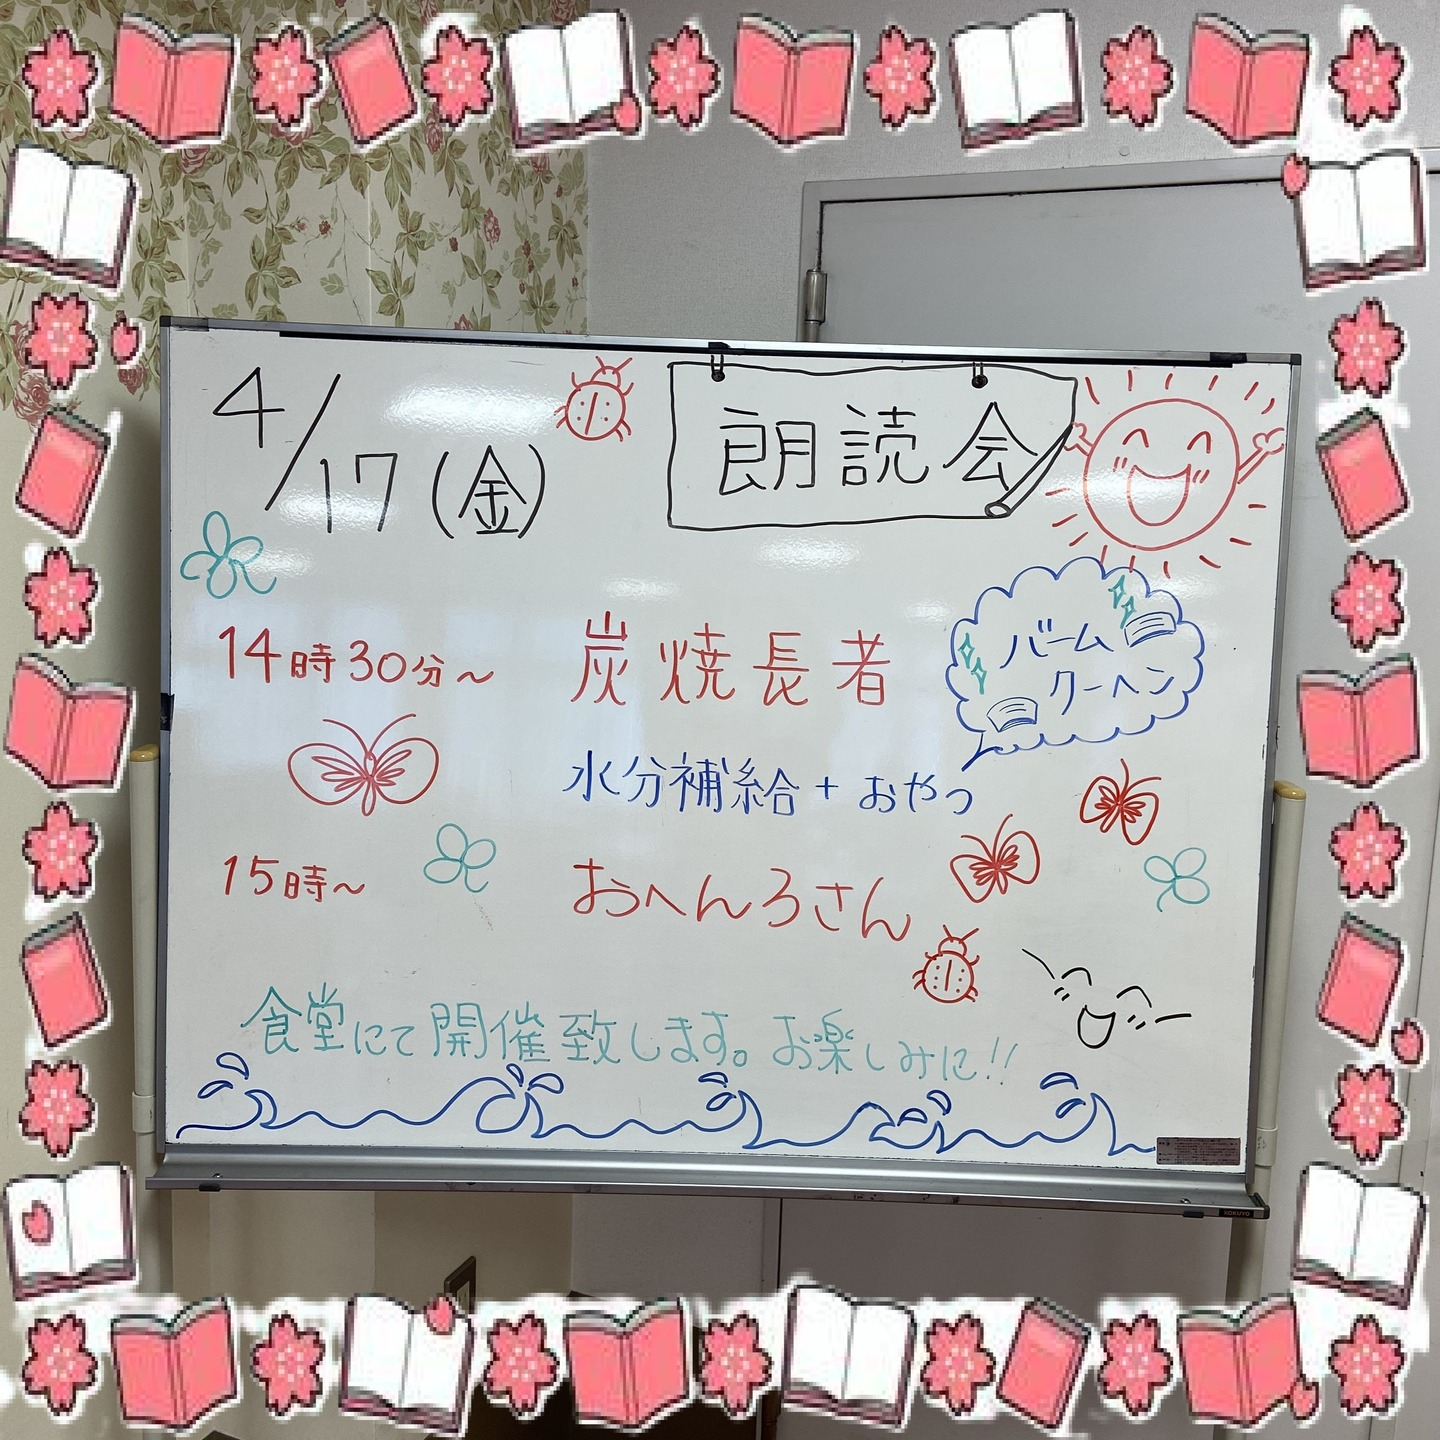 4/17(金)
朗読会
14時30分～ 炭焼長者
バーム
クーヘン
水分補給+おやつ
15時～ おへんろさん
食堂にて開催致します。お楽しみに!!
KOKUYO